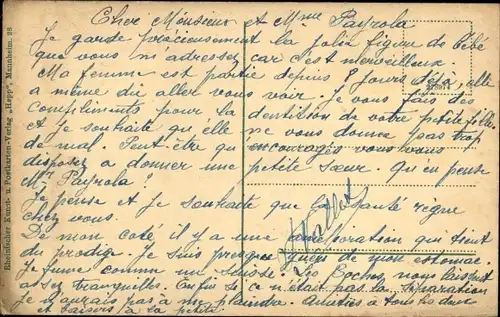 Cher Monsieur et Mme Payrola
Je garde précieusement la jolie figure de bébé
que vous m adressez car c'est merveilleux.
Ma femme est partie depuis 8 jours déja, elle
a même dû aller vous voir. Je vous fais des
compliments pour la dentition de votre petite fille
et je souhaite qu elle ne vous donne pas trop
de mal. Peut-être qu encouragés vous vous
disposez a donner une petite sœur. Qu'en pense
Mr Payrola?
Je pense et je souhaite que la santé règne
chez vous.
De mon coté il y a une amélioration qui tient
du prodige. Je suis presque guéri de mon estomac.
Je fume comme un suisse. Les Boches nous laissent
assez tranquilles. Enfin se c n était pas la séparation
je n aurais pas a me plaindre. Amitiés à tous les deux
et baisers à la petite
J Mallet
Rheinischer Kunst- u. Postkarten-Verlag „Hepp", Mannheim. 28